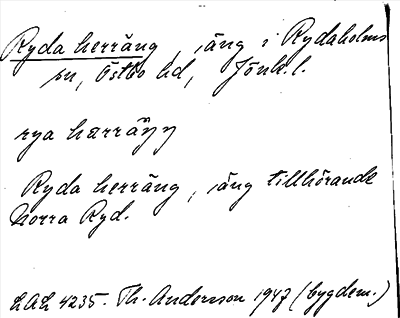 Ryda herräng, äng i Rydaholms
sn, Östbo hd, Jönk. l.
rya härräŋŋ
Ryda herräng, äng tillhörande
Norra Ryd.
4235. Th. Andersson 1947 (bygdem.)